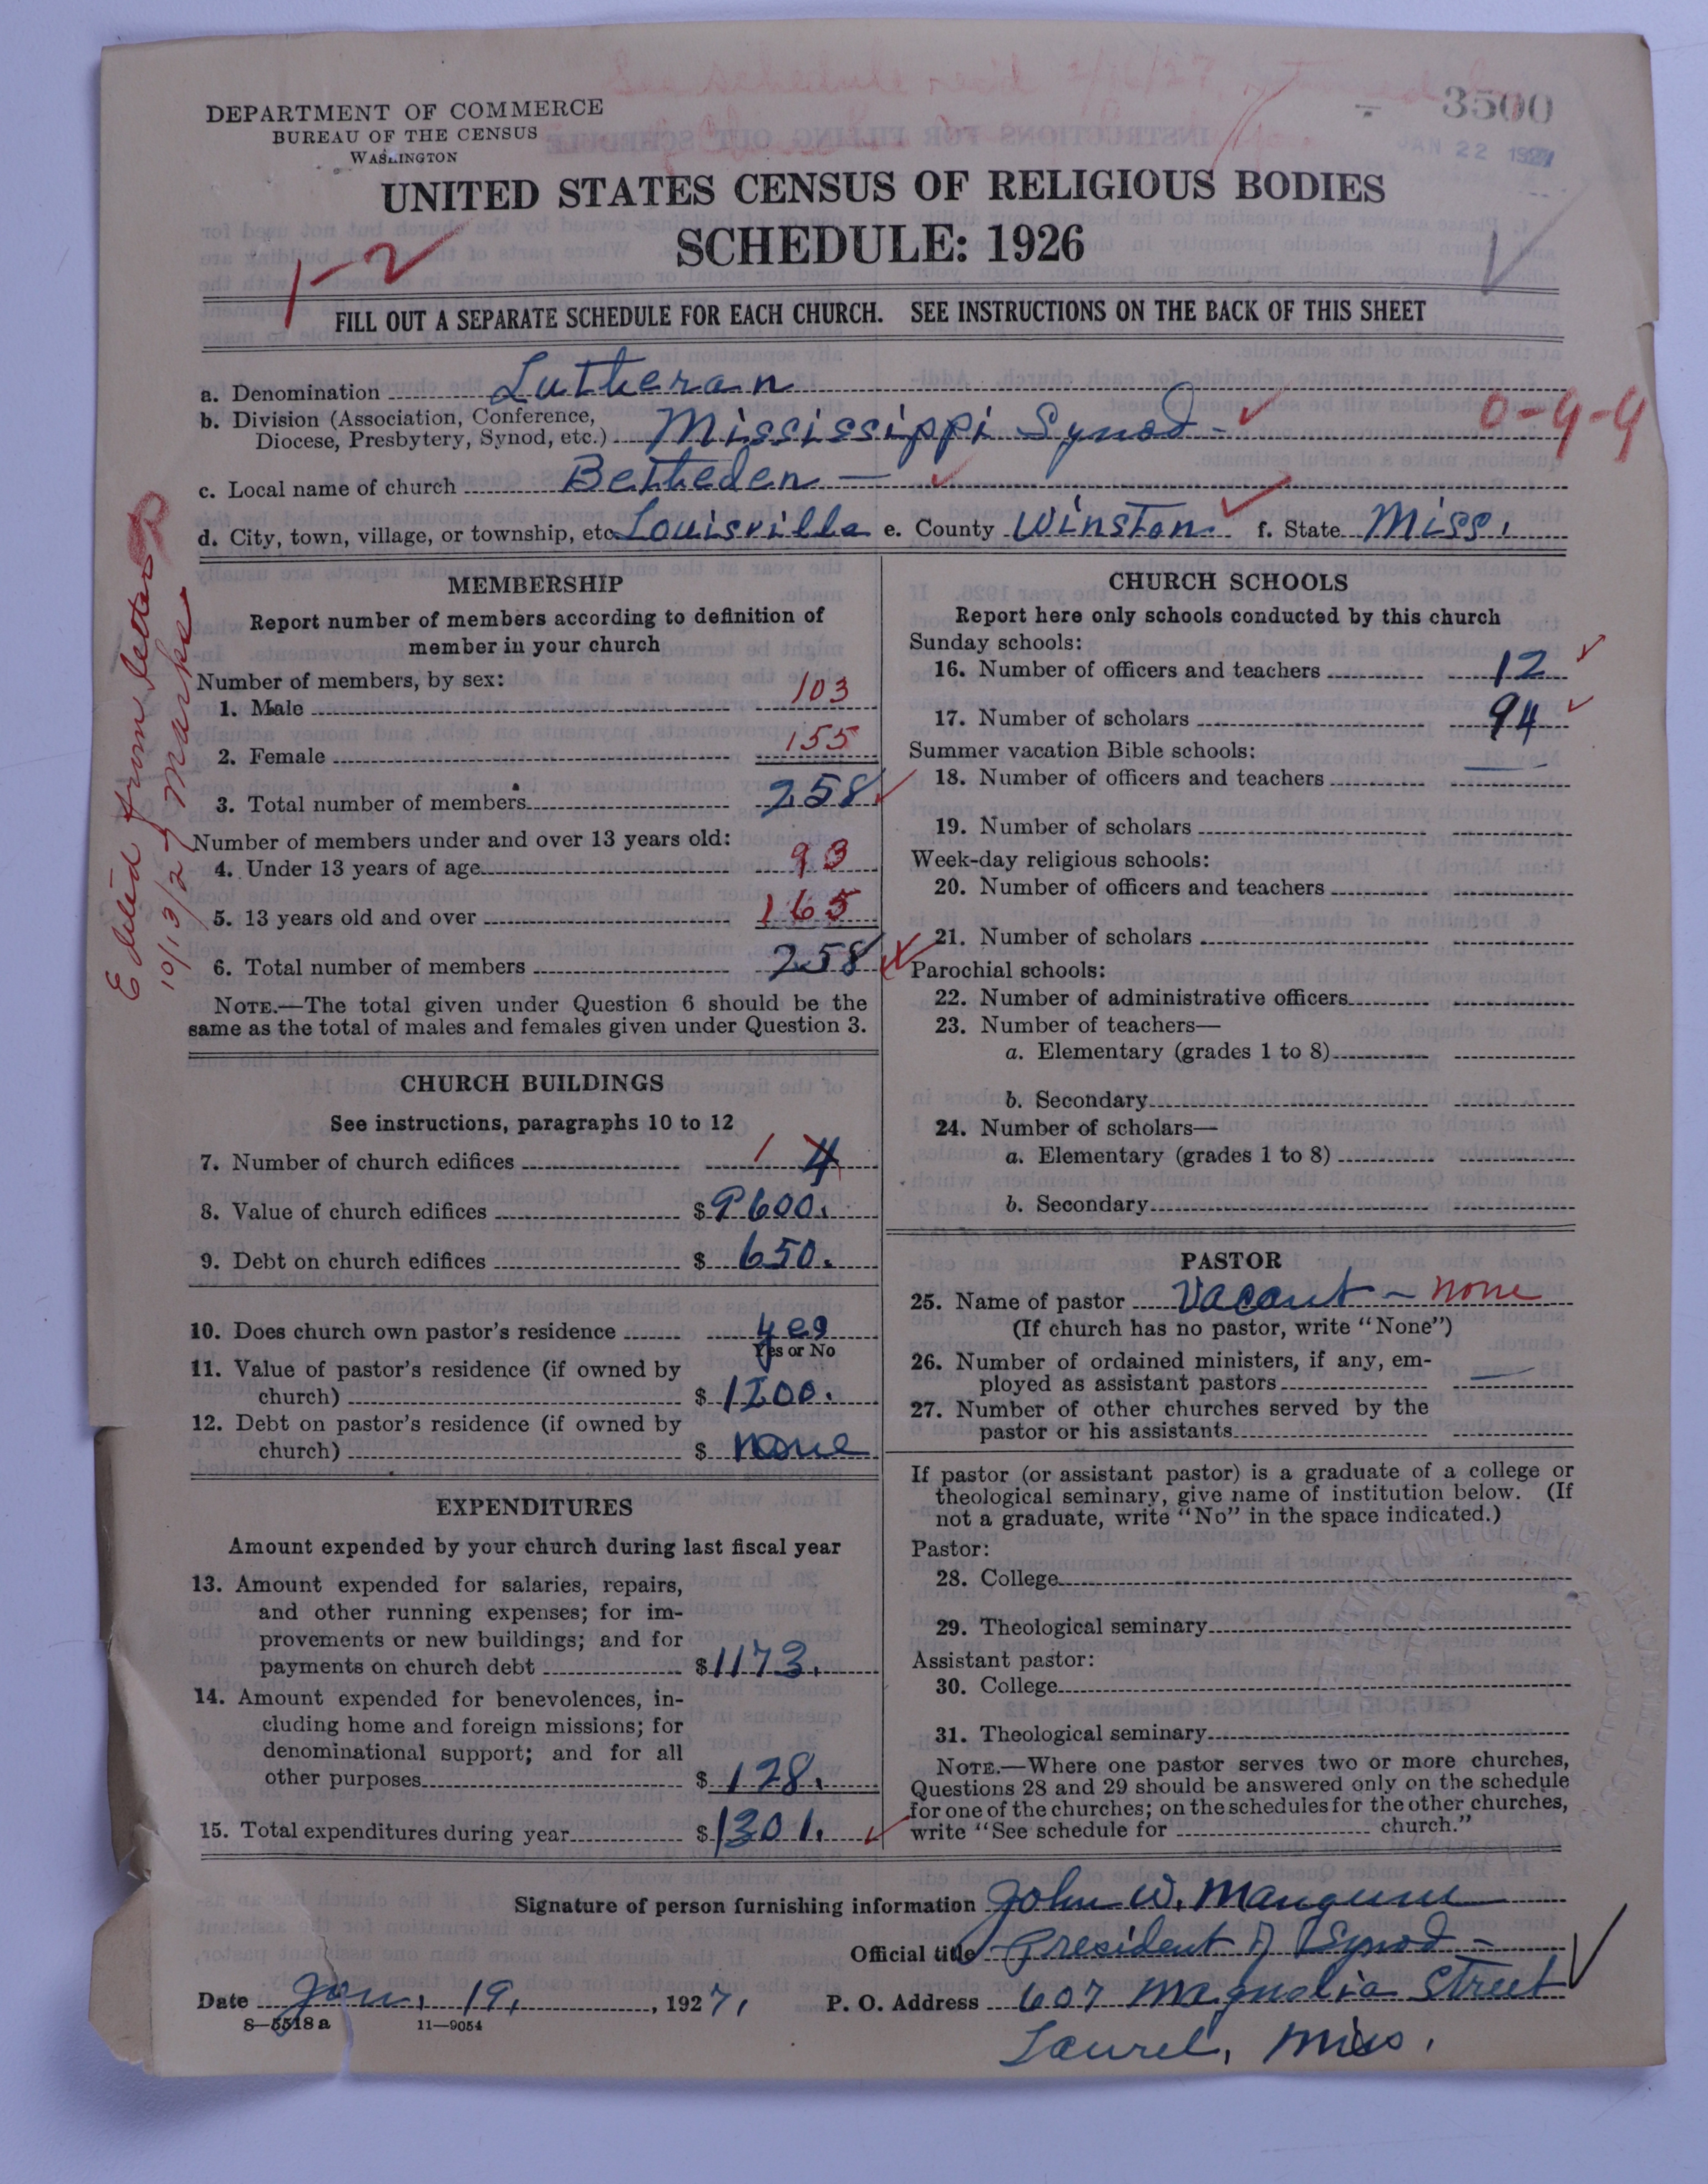 See schedule rec'd 2/16/27, returned
3500
JAN 22 1927
DEPARTMENT OF COMMERCE
BUREAU OF THE CENSUS
WASHINGTON
UNITED STATES CENSUS OF RELIGIOUS BODIES
SCHEDULE: 1926
1-2
FILL OUT A SEPARATE SCHEDULE FOR EACH CHURCH. SEE INSTRUCTIONS ON THE BACK OF THIS SHEET
a. Denomination Lutheran
b. Division (Association, Conference,
Diocese, Presbytery, Synod, etc.) Mississippi Synod - 0-9-9
c. Local name of church Betheden -
d. City, town, village, or township, etc. Louisville e. County Winston. f. State Miss.
Edited from letters
10/13/27 Marks
MEMBERSHIP
Report number of members according to definition of
member in your church
Number of members, by sex:
1. Male 103
2. Female 155
3. Total number of members 258
Number of members under and over 13 years old:
4. Under 13 years of age 93
5. 13 years old and over 165
6. Total number of members 258
NOTE.—The total given under Question 6 should be the
same as the total of males and females given under Question 3.
CHURCH BUILDINGS
See instructions, paragraphs 10 to 12
7. Number of church edifices 1 4
8. Value of church edifices $ 9600.
9. Debt on church edifices $ 650.
10. Does church own pastor's residence yes
Yes or No
11. Value of pastor's residence (if owned by
church) $ 1200.
12. Debt on pastor's residence (if owned by
church) $ none
EXPENDITURES
Amount expended by your church during last fiscal year
13. Amount expended for salaries, repairs,
and other running expenses; for im-
provements or new buildings; and for
payments on church debt $ 1173.
14. Amount expended for benevolences, in-
cluding home and foreign missions; for
denominational support; and for all
other purposes $ 128.
15. Total expenditures during year $ 1301.
CHURCH SCHOOLS
Report here only schools conducted by this church
Sunday schools:
16. Number of officers and teachers 12
17. Number of scholars 94
Summer vacation Bible schools:
18. Number of officers and teachers —
19. Number of scholars
Week-day religious schools:
20. Number of officers and teachers
21. Number of scholars
Parochial schools:
22. Number of administrative officers
23. Number of teachers—
a. Elementary (grades 1 to 8)
b. Secondary
24. Number of scholars—
a. Elementary (grades 1 to 8)
b. Secondary
PASTOR
25. Name of pastor Vacant - none
(If church has no pastor, write "None")
26. Number of ordained ministers, if any, em-
ployed as assistant pastors —
27. Number of other churches served by the
pastor or his assistants
If pastor (or assistant pastor) is a graduate of a college or
theological seminary, give name of institution below. (If
not a graduate, write "No" in the space indicated.)
Pastor:
28. College
29. Theological seminary
Assistant pastor:
30. College
31. Theological seminary
NOTE.—Where one pastor serves two or more churches,
Questions 28 and 29 should be answered only on the schedule
for one of the churches; on the schedules for the other churches,
write "See schedule for church."
Signature of person furnishing information John W. Mangum
Official title President of Synod -
Date Jan. 19, 1927. P. O. Address 607 Magnolia Street
S-5518a 11-9054
Laurel, Miss.